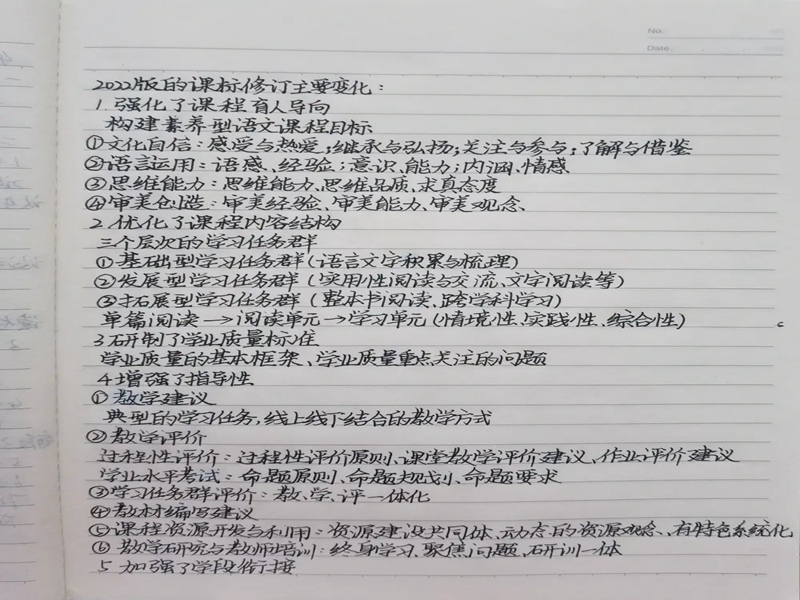 No.
Date.
2022版的课标修订主要变化:
1. 强化了课程育人导向
构建素养型语文课程目标
①文化自信:感受与热爱;继承与弘扬;关注与参与;了解与借鉴
②语言运用:语感、经验;意识、能力;内涵、情感
③思维能力:思维能力、思维品质、求真态度
④审美创造:审美经验、审美能力、审美观念
2. 优化了课程内容结构
三个层次的学习任务群
①基础型学习任务群(语言文字积累与梳理)
②发展型学习任务群(实用性阅读与交流、文字阅读等)
③拓展型学习任务群(整本书阅读、跨学科学习)
单篇阅读→阅读单元→学习单元(情境性、实践性、综合性)
3 研制了学业质量标准
学业质量的基本框架、学业质量重点关注的问题
4 增强了指导性
①教学建议
典型的学习任务,线上线下结合的教学方式
②教学评价
过程性评价:过程性评价原则、课堂教学评价建议、作业评价建议
学业水平考试:命题原则、命题规划、命题要求
③学习任务群评价:教、学、评一体化
④教材编写建议
⑤课程资源开发与利用:资源建设共同体、动态的资源观念、有特色系统化
⑥教学研究与教师培训:终身学习、聚焦问题、研训一体
5 加强了学段衔接